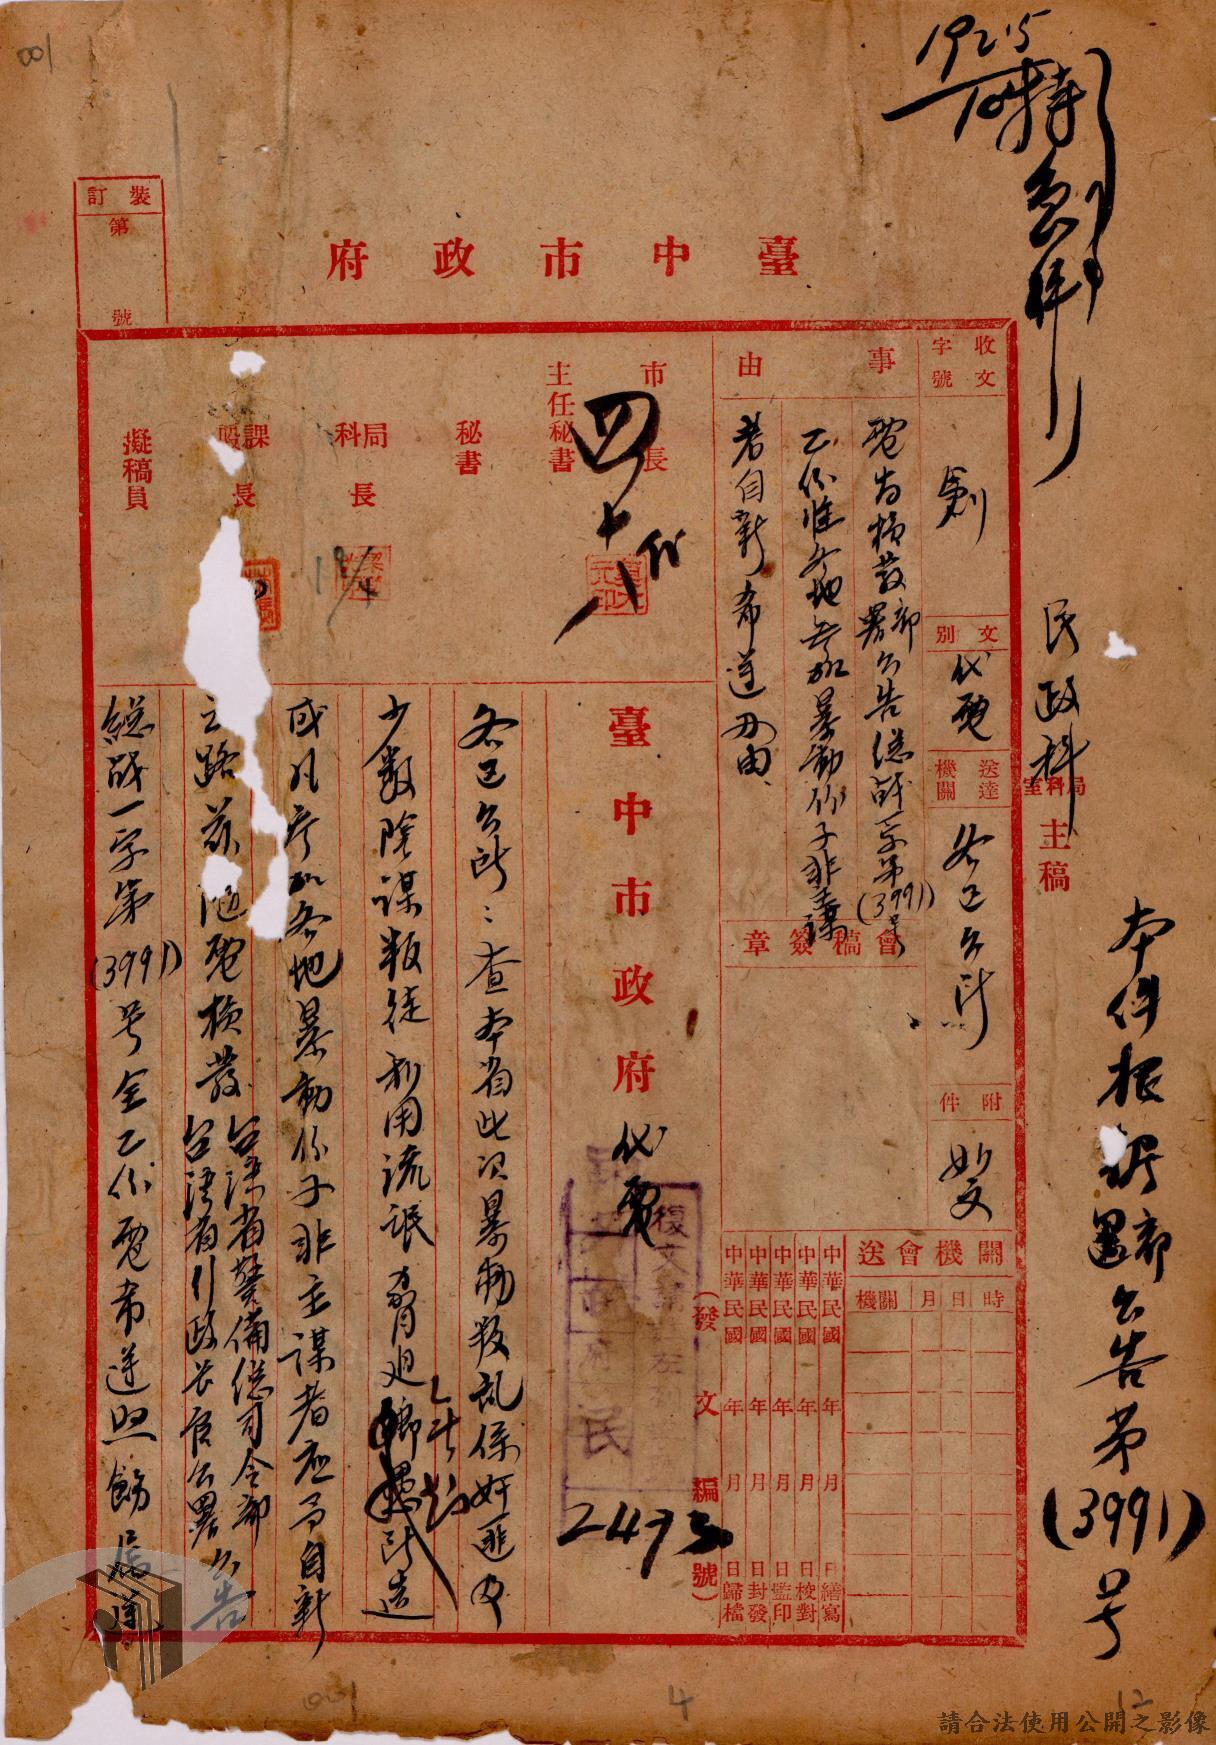 001
192.5
特急件
臺中市政府
裝訂
第
號
民政科
局科室主稿
本件根據部署公告第(3991)号
收文字號
創
文別
代電
送達機關
各区公所
附件
如文
事由
電為檢發部署公告總戰一字第(3991)号
乙份准各地参加暴動份子非主謀
者自新希遵办由
會稿簽章
市長
主任秘書
四十八
秘書
局科長
19/4
課股長
擬稿員
關機會送
時日月機關
中華民國 年 月 日繕寫
中華民國 年 月 日校對
中華民國 年 月 日監印
中華民國 年 月 日封發
中華民國 年 月 日歸檔
(發文編號)
2473
臺中市政府代電
各区公所：查本省此次暴動叛乱係奸匪及
少数陰謀叛徒利用流氓脅迫
所造
或凡参加各地暴動份子非主謀者应予自新
之路茲随電檢發台湾省警備總司令部
台湾省行政长官公署公告
總戰一字第(3991)号全乙份電希遵照飭属遵
001
4
12
請合法使用公開之影像